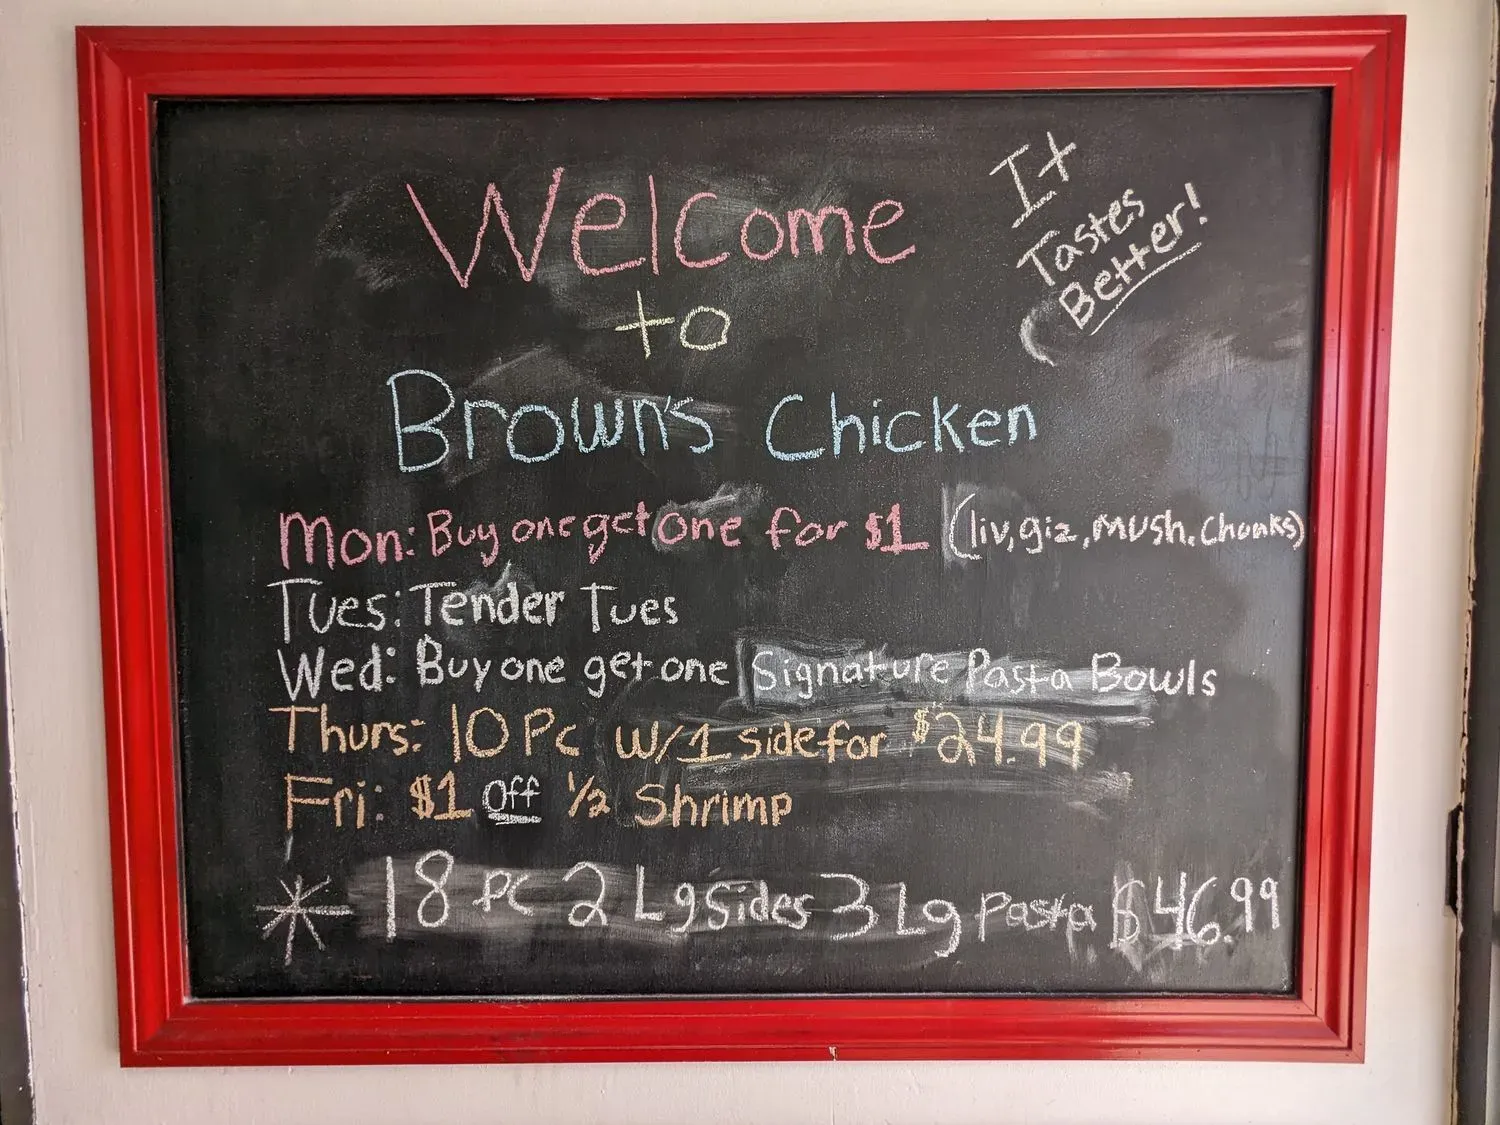 Welcome
to
Brown's Chicken
It
Tastes
Better!
Mon: Buy one get one for $1 (liv, giz, mush. Chunks)
Tues: Tender Tues
Wed: Buy one get one Signature Pasta Bowls
Thurs: 10 Pc w/1 side for $24.99
Fri: $1 off 1/2 Shrimp
* 18 pc 2 Lg Sides 3 Lg Pasta $46.99